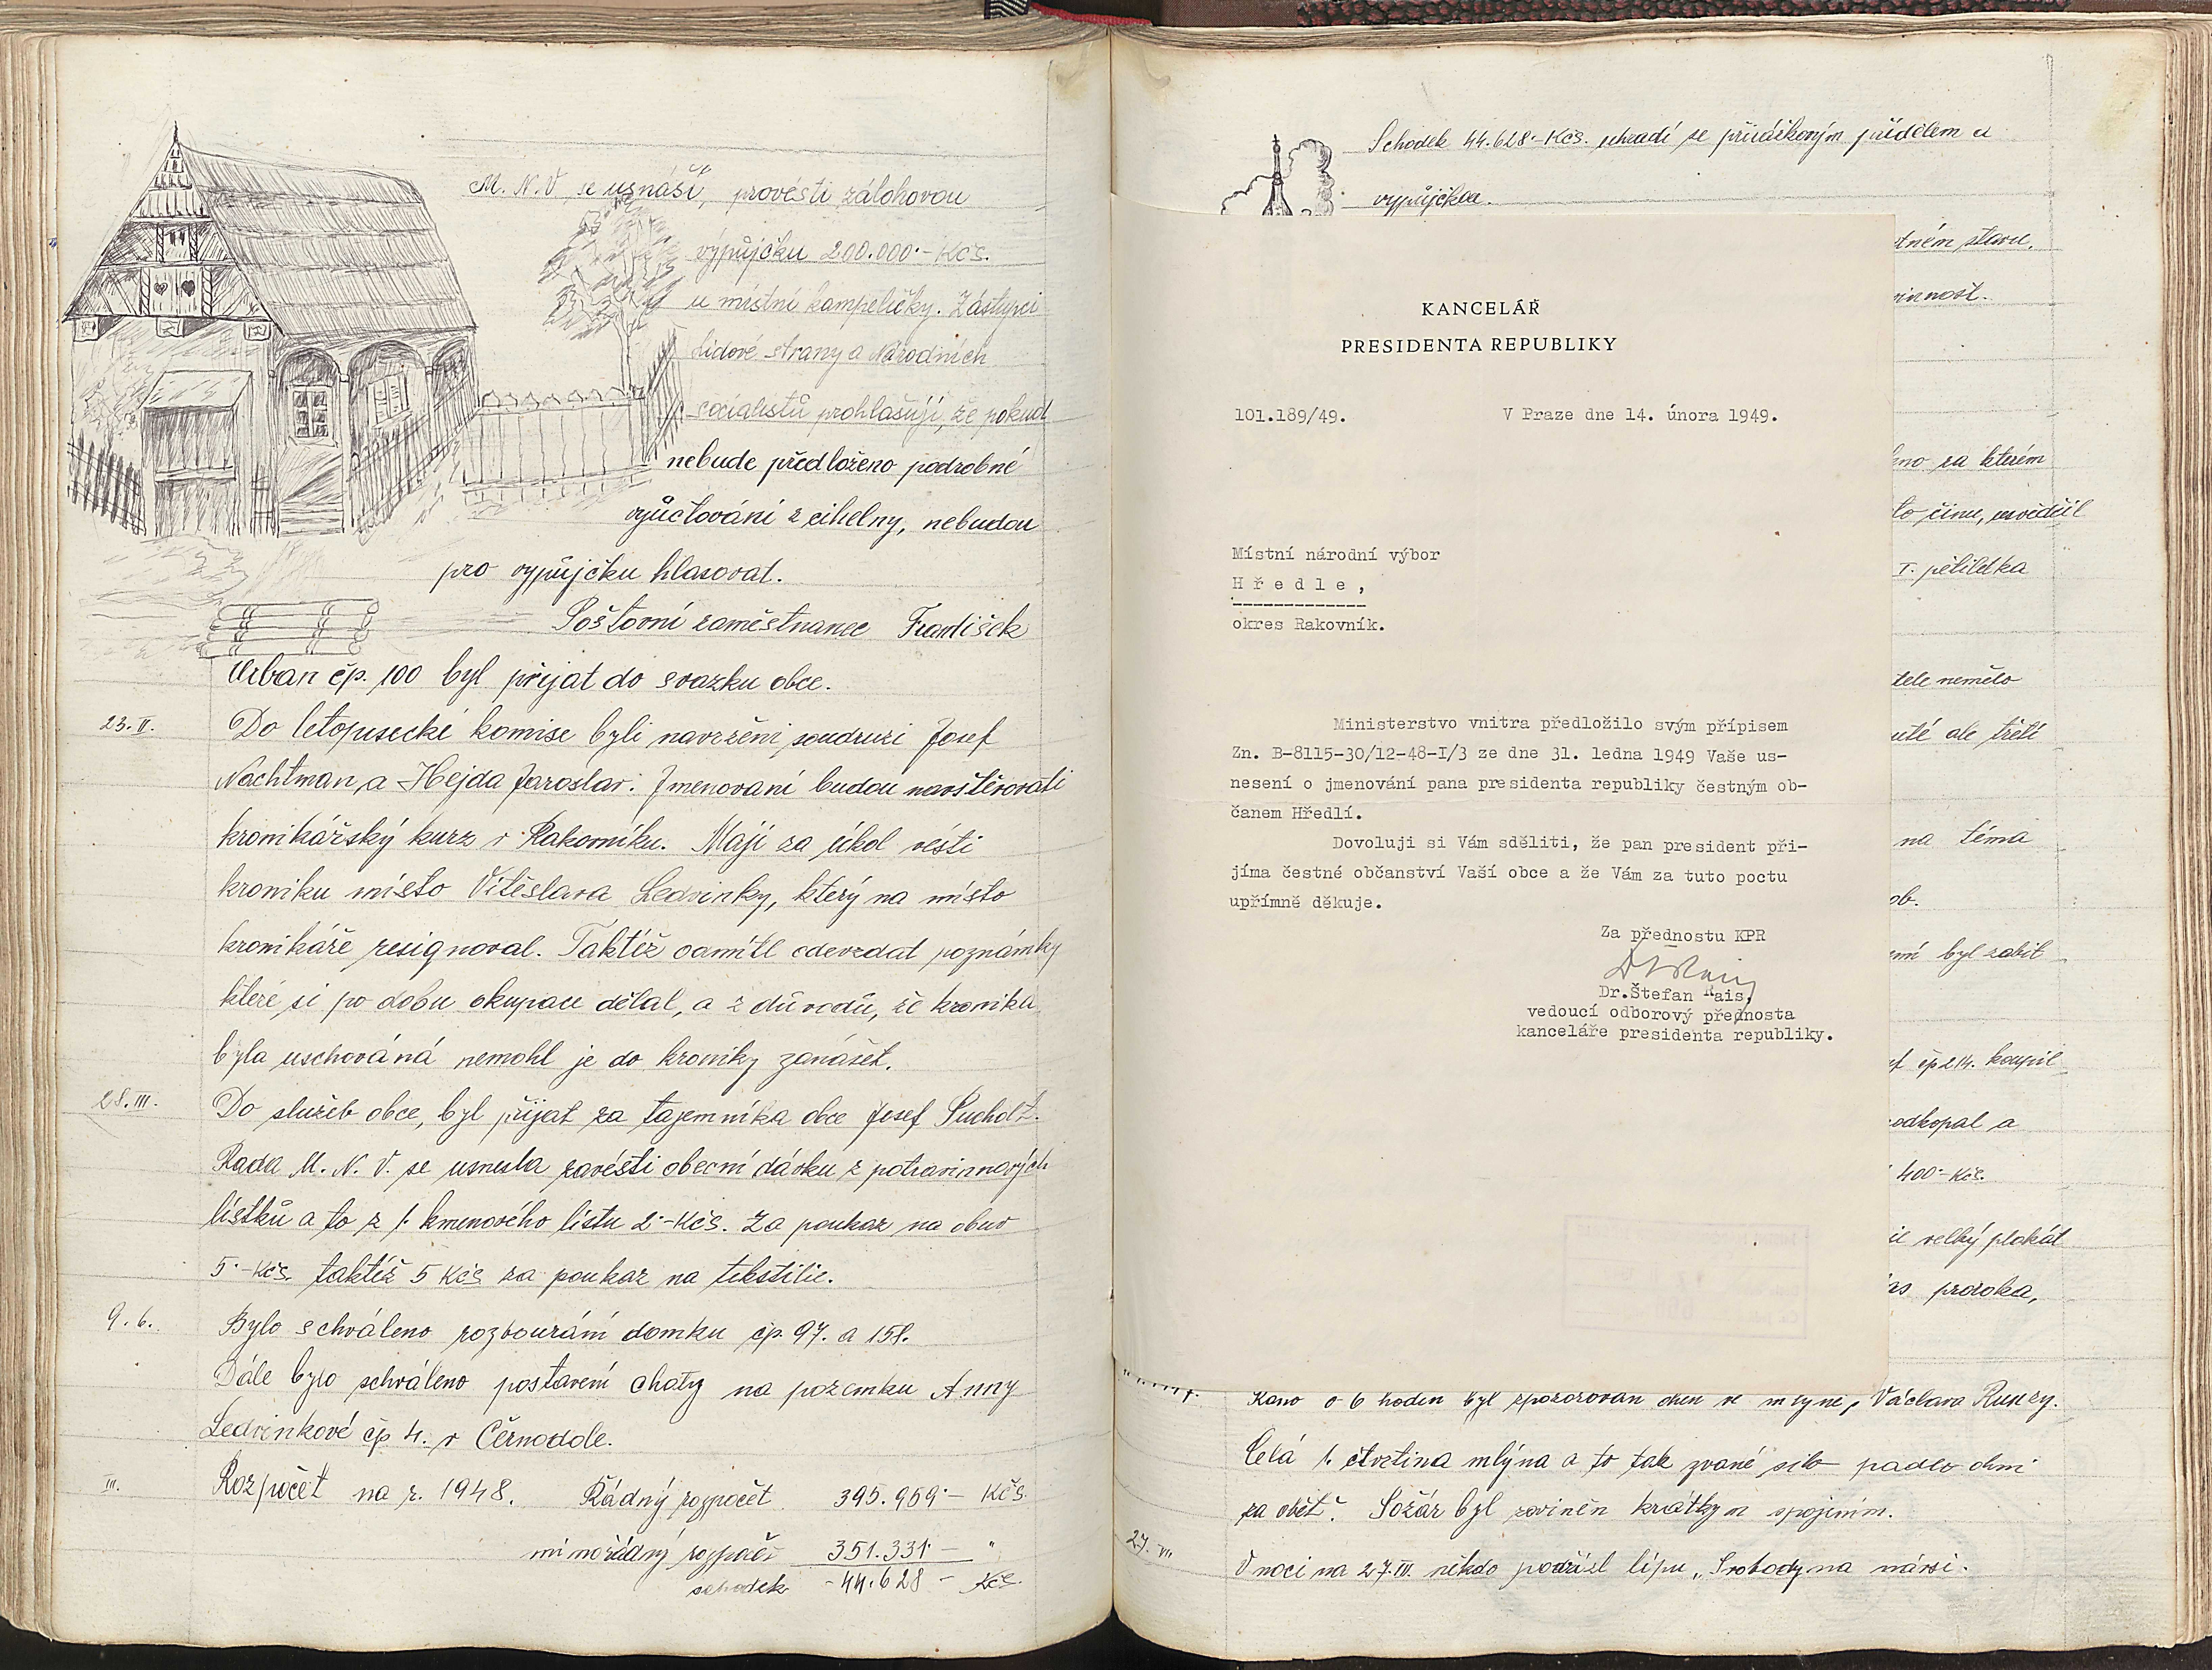 M. N. V. se usnáší, provésti zálohovou
výpůjčku 200.000·- Kčs.
u místní kampeličky. Zástupci
Lidové strany a Národních
socialistů prohlašují, že pokud
nebude předloženo podrobné
vyúčtování z cihelny, nebudou
pro vypůjčku hlasovat.
Poštovní zaměstnanec František
Urban čp. 100 byl přijat do svazku obce.
23. II. Do letopisecké komise byli navrženi soudruzi Josef
Nachtman, a Hejda Jaroslav. Jmenovaní budou navštěvovati
kronikářský kurz v Rakovníku. Mají za úkol vésti
kroniku místo Vítěslava Ledvinky, který na místo
kronikáře resignoval. Taktéž odmítl odevzdat poznámky
které si po dobu okupace dělal, a z důvodů, že kronika
byla uschováná nemohl je do kroniky zanášet.
28. III. Do služeb obce, byl přijat za tajemníka obce Josef
Rada M. N. V. se usnesla zavésti obecní dávku z potravinnových
lístků a to z 1. kmenového lístu 2·- Kčs. Za poukaz na obuv
5·- Kčs. taktéž 5 Kčs za poukaz na tekstilie.
9. 6. Bylo schváleno rozbourání domku čp. 97. a 158.
Dále bylo schváleno postavení chaty na pozemku Anny
Ledvinkové čp 4. v Černodole.
III. Rozpočet na r. 1948. Řádný rozpočet 395.959·- Kčs.
mimořádný rozpočet 351.331·- "
schodek -44.628 - Kčs.
Schodek 44.628·- Kčs. uhradí se přirážkovým přídělem a
vypůjčkou.
stavu,
KANCELÁŘ
PRESIDENTA REPUBLIKY
101.189/49. V Praze dne 14. února 1949.
Místní národní výbor
Hředle,
okres Rakovník.
Ministerstvo vnitra předložilo svým přípisem
Zn. B-8115-30/12-48-I/3 ze dne 31. ledna 1949 Vaše us-
nesení o jmenování pana presidenta republiky čestným ob-
čanem Hředlí.
Dovoluji si Vám sděliti, že pan president při-
jíma čestné občanství Vaší obce a že Vám za tuto poctu
upřímně děkuje.
Za přednostu KPR
Dr.Štefan Rais,
vedoucí odborový přednosta
kanceláře presidenta republiky.
za kterém
činu, usvědčil
I. pětiletka
nemělo
ale třetí
na téma
byl zabit
čp 214. koupil
a
400·- Kčs.
velký plakát
proroka,
Ráno o 6 hodin byl zpozorovan ohen ve mlyne, Václava
Celá 1. čtvrtina mlýna a to tak zvané silo padlo ohni
za oběť. Požár byl zaviněn krátkym spojením.
27. VII. V noci na 27. někdo podřízl lípu „Svobody na návsi.